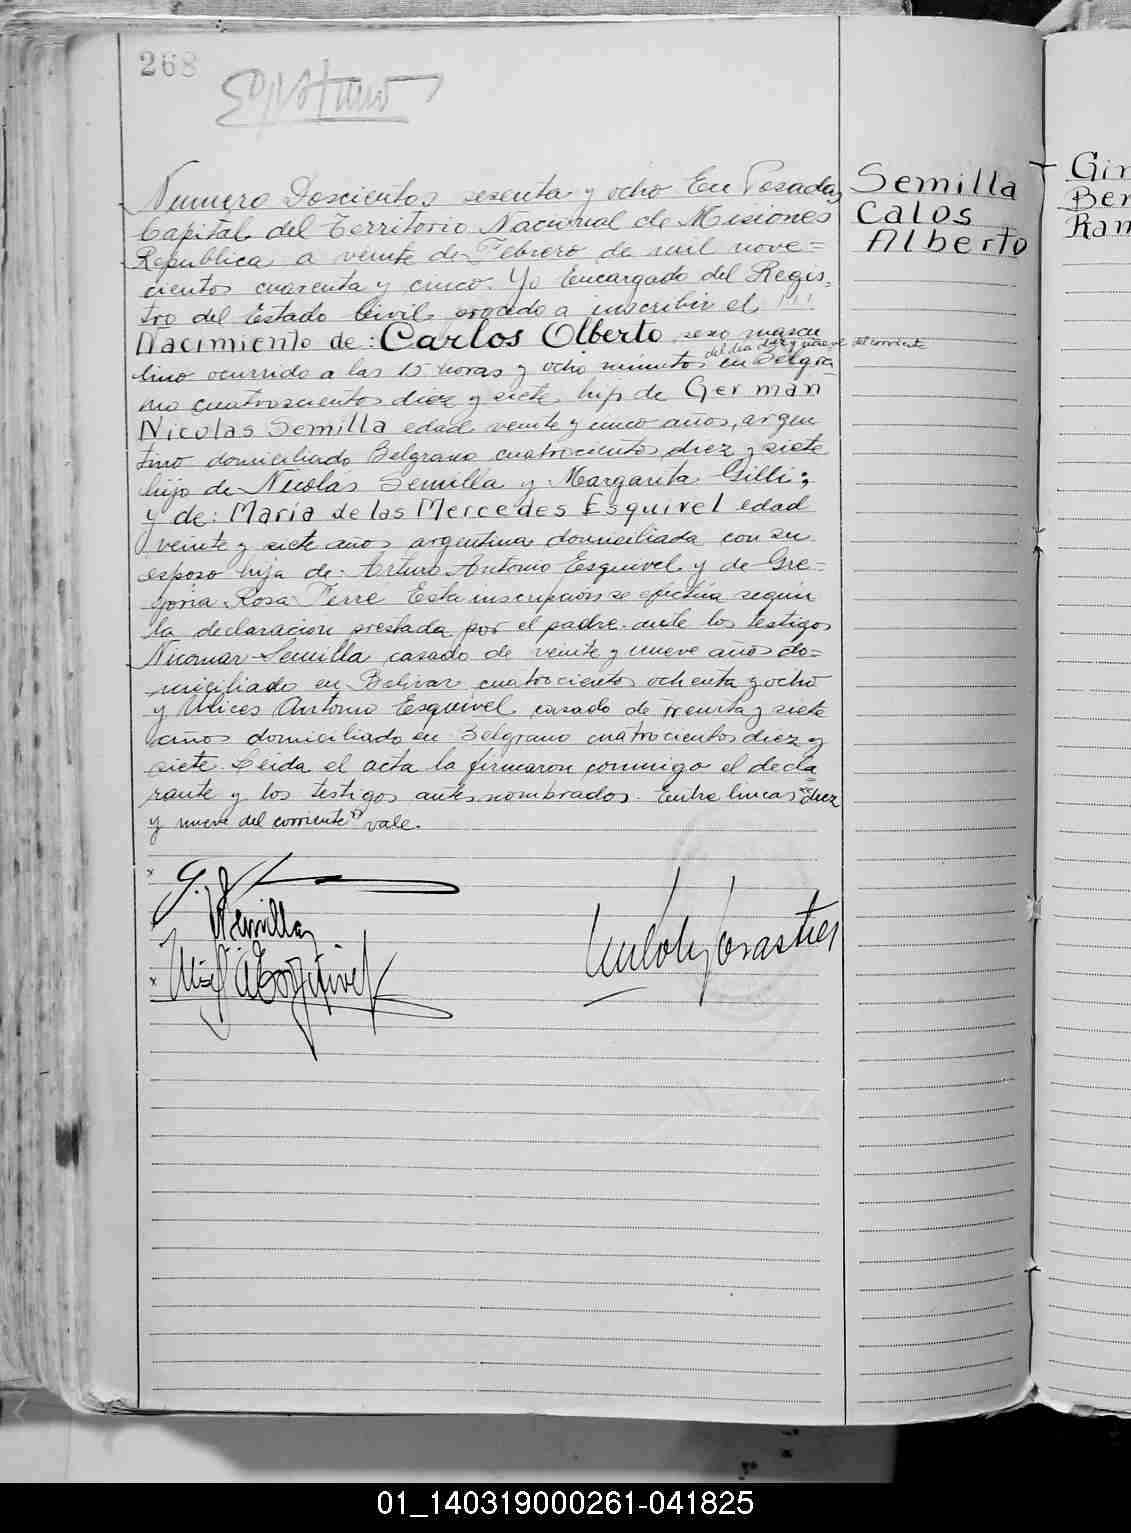 268
Numero Doscientos sesenta y ocho En Posadas
Capital del Territorio Nacional de Misiones
Republica a veinte de Febrero de mil nove=
cientos cuarenta y cinco. Yo Encargado del Regis,
tro del Estado Civil procedo a inscribir el !!!
Nacimiento de: Carlos Alberto, sexo mascu
del dia diez y nueve del corriente
lino ocurrido a las 15 horas y ocho minutos en Belgra
no cuatroscientos diez y siete, hijo de German
Nicolas Semilla edad veinte y cinco años, argen
tino domiciliado Belgrano cuatrocientos diez y siete
hijo de Nicolas Semilla y Margarita Gilli;
y de: Maria de las Mercedes Esquivel edad
veinte y siete años argentina domiciliada con su
esposo hija de Arturo Antonio Esquivel y de Gre=
goria Rosa Esta inscripcion se efectúa según
la declaracion prestada por el padre ante los testigos
Semilla casado de veinte y nueve años do=
miciliado en Bolivar cuatrocientos ochenta y ocho
y Ulices Antonio Esquivel casado de treinta y siete
años domiciliado en Belgrano cuatrocientos diez y
siete. Leida el acta la firmaron conmigo el decla
rante y los testigos antes nombrados. Entre lineas "diez
y nueve del corriente" vale.
Semilla
Semilla
Calos
Alberto
Gim
Ber
Ram
01_140319000261-041825